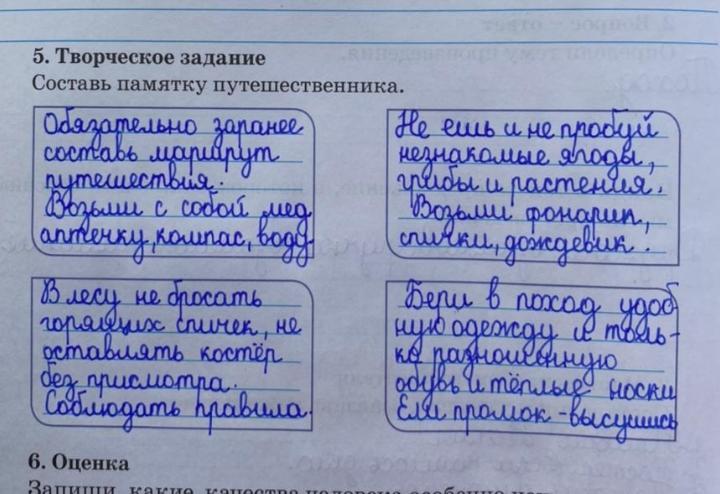 5. Творческое задание
Составь памятку путешественника.
Обязательно заранее
составь маршрут
путешествия.
Возьми с собой мед
аптечку, компас, воду
Не ешь и не пробуй
незнакомые ягоды,
грибы и растения.
Возьми фонарик,
спички, дождевик.
В лесу не бросать
горящих спичек, не
оставлять костёр
без присмотра.
Соблюдать правила.
Бери в поход удоб
ную одежду и толь-
ко разношенную
обувь и тёплые носки
Если промок - высушись
6. Оценка
Запиши, какие качества человека особенно